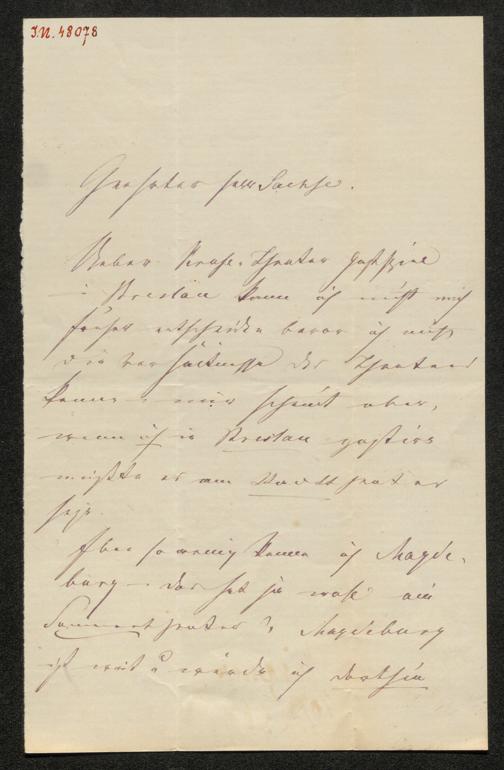 I.N. 48078
Geehrter Herr Sachse.
Ueber Kroll-Theater Gastspiel
in Breslau kann ich nicht mich
früher entscheiden bevor ich nicht
die Verhältnisse des Theaters
kenne – mir scheint aber,
wenn ich in Breslau gastire
müßte es am Stadttheater
sein.
Eben so wenig kenne ich Magde-
burg – das hat ja wohl ein
Sommertheater? Magdeburg
ist weit u würde ich dorthin